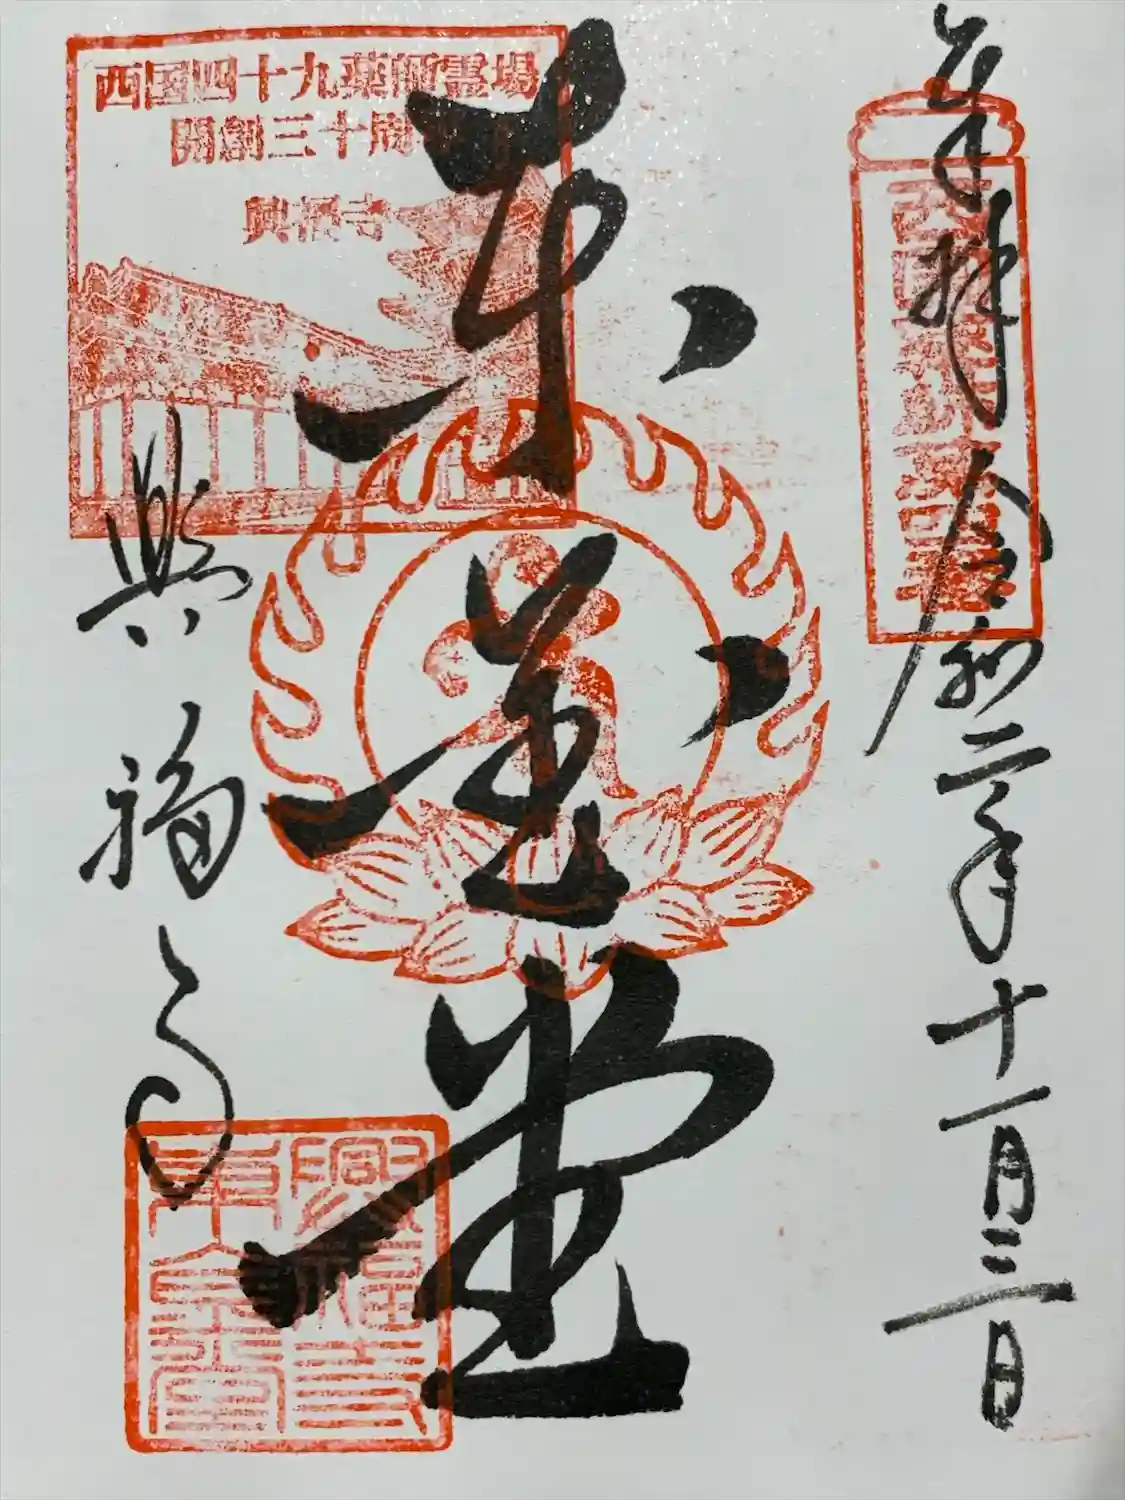 奉拝 令和二年十一月三日
東金堂
西国四十九薬師霊場
開創三十周
興福寺
興福寺
興福寺
東金堂